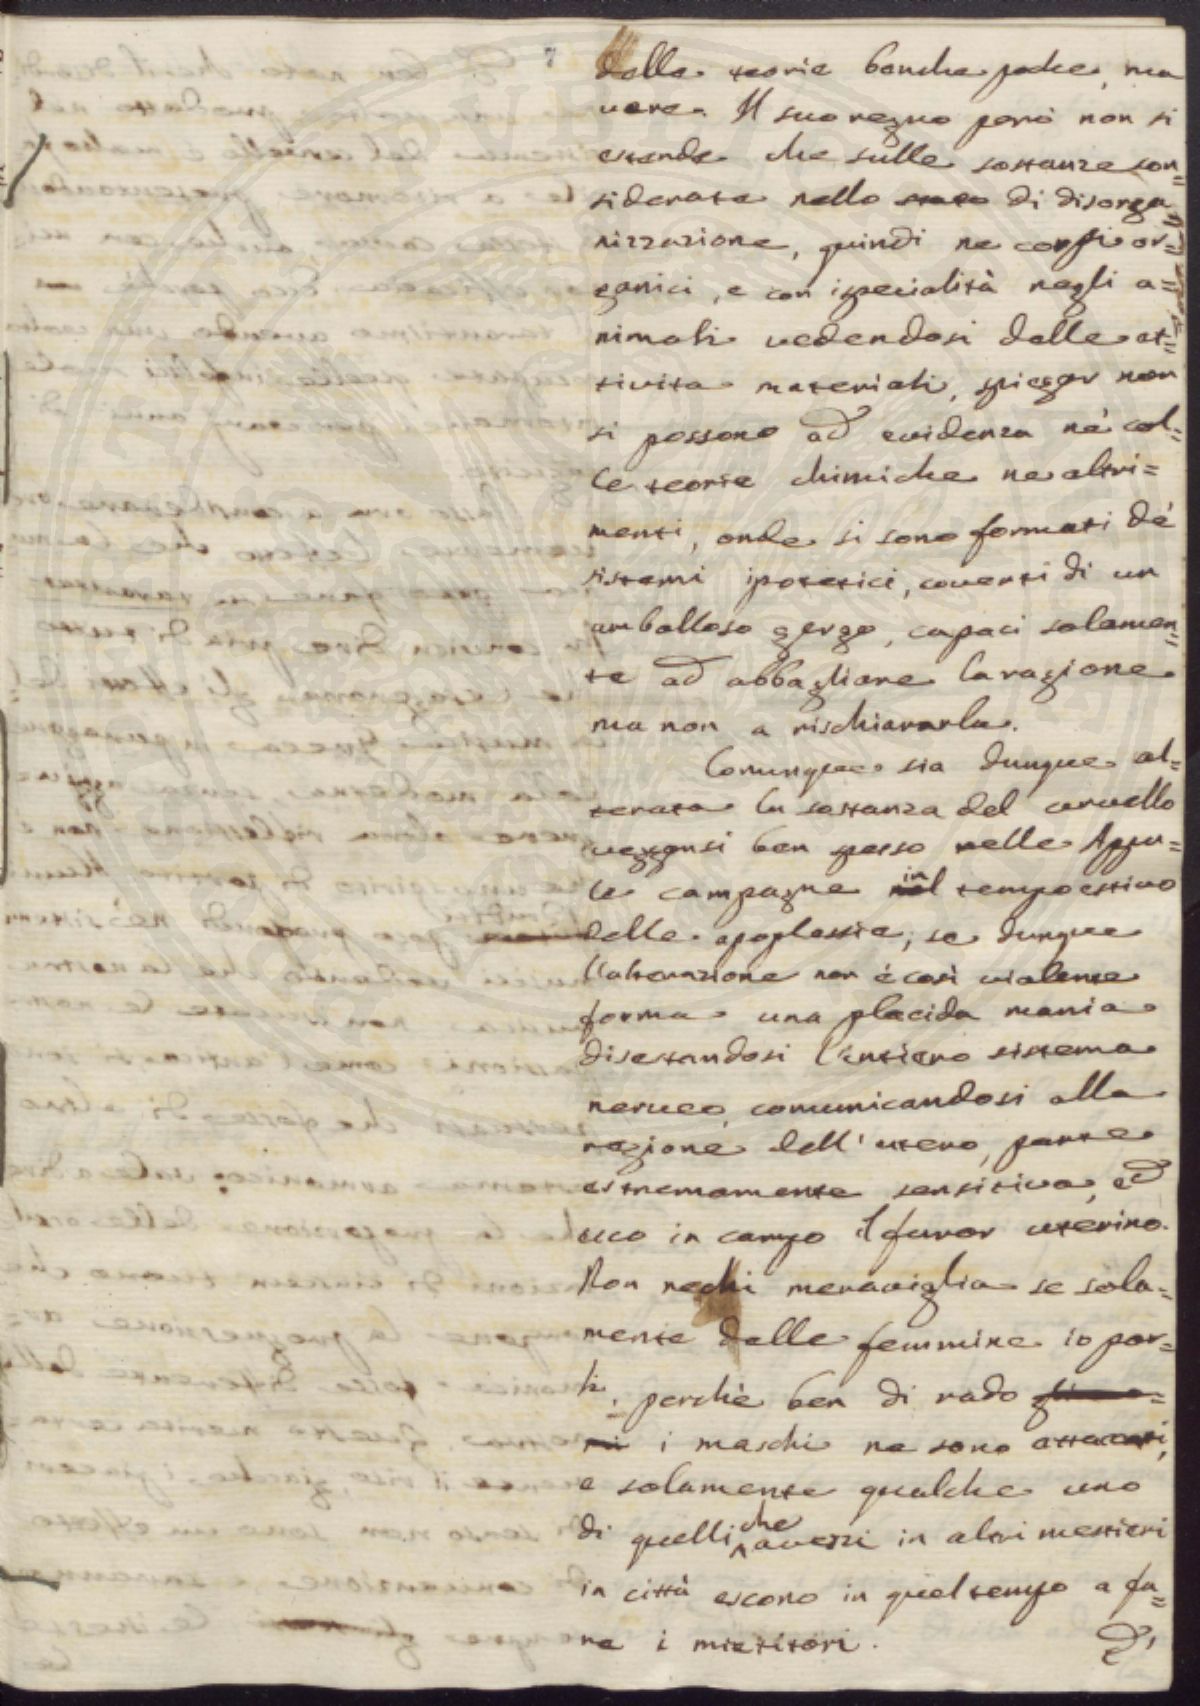 7
delle teorie benche poche, ma
vere. Il suo regno però non si
estende che sulle sostanze con=
siderate nello stato di disorga=
nizzazione, quindi ne corpi or=
ganici, e con ispecialità negli a=
nimali vedendosi delle at=
tivita materiali, spiegar non
si possono ad evidenza nè col=
le teorie chimiche ne altri=
menti, onde si sono formati de'
sistemi ipotetici, coverti di un
ampolloso gergo, capaci solamen=
te ad abbagliare la ragione
ma non a rischiararla.
Comunque sia dunque al=
terata la sostanza del cervello
veggonsi ben spesso nelle Appu=
le campagne in tempo estivo
delle apoplessie; se dunque
l'alterazione non è così violente
forma una placida mania
disestandosi l'intiero sistema
nerveo, comunicandosi alla
regione dell'utero, parte
estremamente sensitiva, ed
ecco in campo il furor uterino.
Non rechi meraviglia se sola=
mente delle femmine io par=
li; perchè ben di rado
i maschi ne sono attaccati,
e solamente qualche uno
di quelli che avezzi in altri mestieri
in città escono in quel tempo a fa=
re i mietitori.
D'